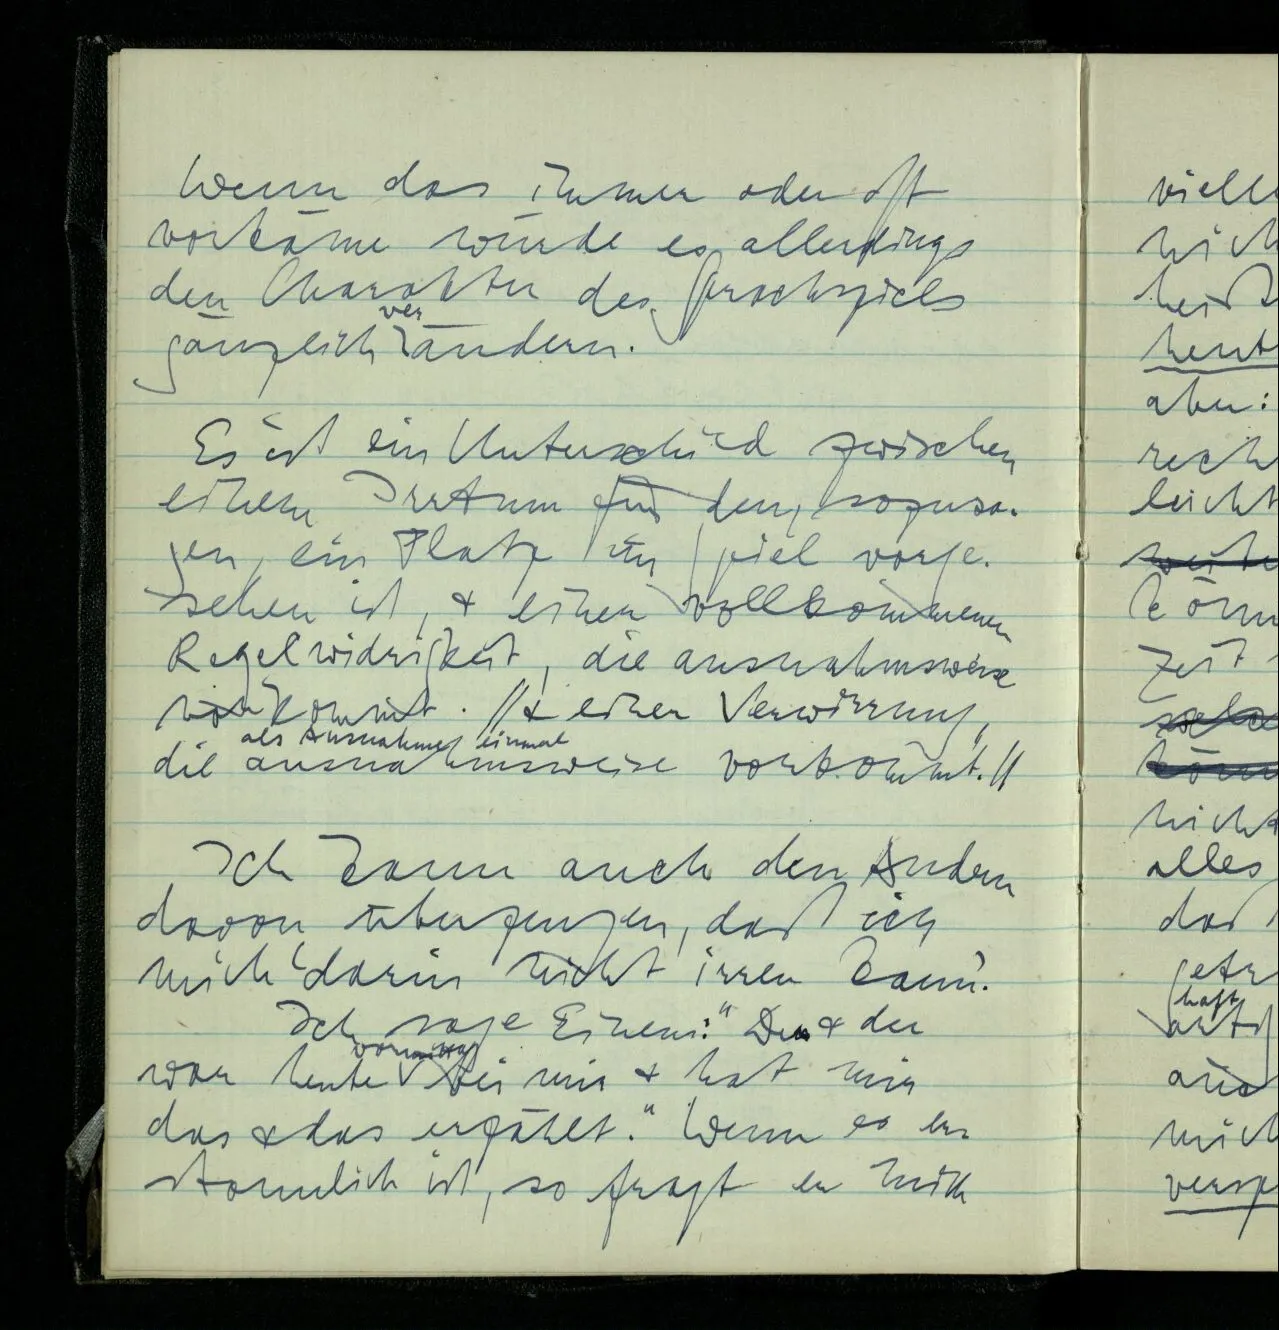 Wenn das immer oder oft
vorkäme würde es allerdings
den Charakter des Sprachspiels
gänzlich verändern.
Es ist ein Unterschied zwischen
einem Irrtum für den, sozusa-
gen, ein Platz im Spiel vorge-
sehen ist, & einer vollkommenen
Regelwidrigkeit, die ausnahmsweise
vorkommt. // & einer Verwirrung,
als Ausnahme einmal
die ausnahmsweise vorkommt. //
Ich kann auch den Andern
davon überzeugen, daß ich
mich 'darin nicht irren kann'.
Ich sage Einem: "Der & der
vormittag
war heute bei mir & hat mir
das & das erzählt." Wenn es er-
staunlich ist, so fragt er mich
vielle
nich
heißt
heut
aber:
rech
leicht
könn
Zeit
nicht
alles
daß
haft
auch
mich
versp